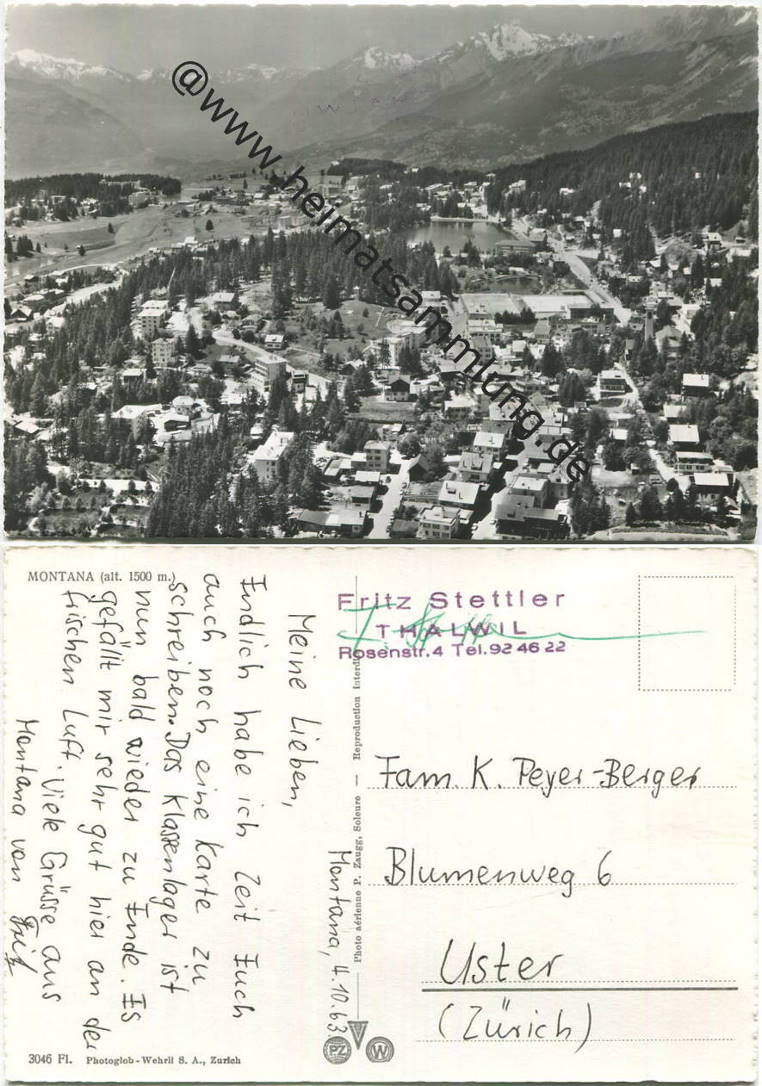 @www.heimatsammlung.de
MONTANA (alt. 1500 m.)
Montana, 4.10.63
Meine Lieben,
Endlich habe ich Zeit Euch
auch noch eine Karte zu
schreiben. Das Klassenlager ist
nun bald wieder zu Ende. Es
gefällt mir sehr gut hier an der
frischen Luft. Viele Grüsse aus
Montana von Fritz
Fritz Stettler
THALWIL
Rosenstr. 4 Tel. 92 46 22
Fam. K. Peyer-Berger
Blumenweg 6
Uster
(Zürich)
Photo aérienne P. Zaugg, Soleure — Reproduction interdi
3046 Fl. Photoglob-Wehrli S. A., Zurich
PZ
W